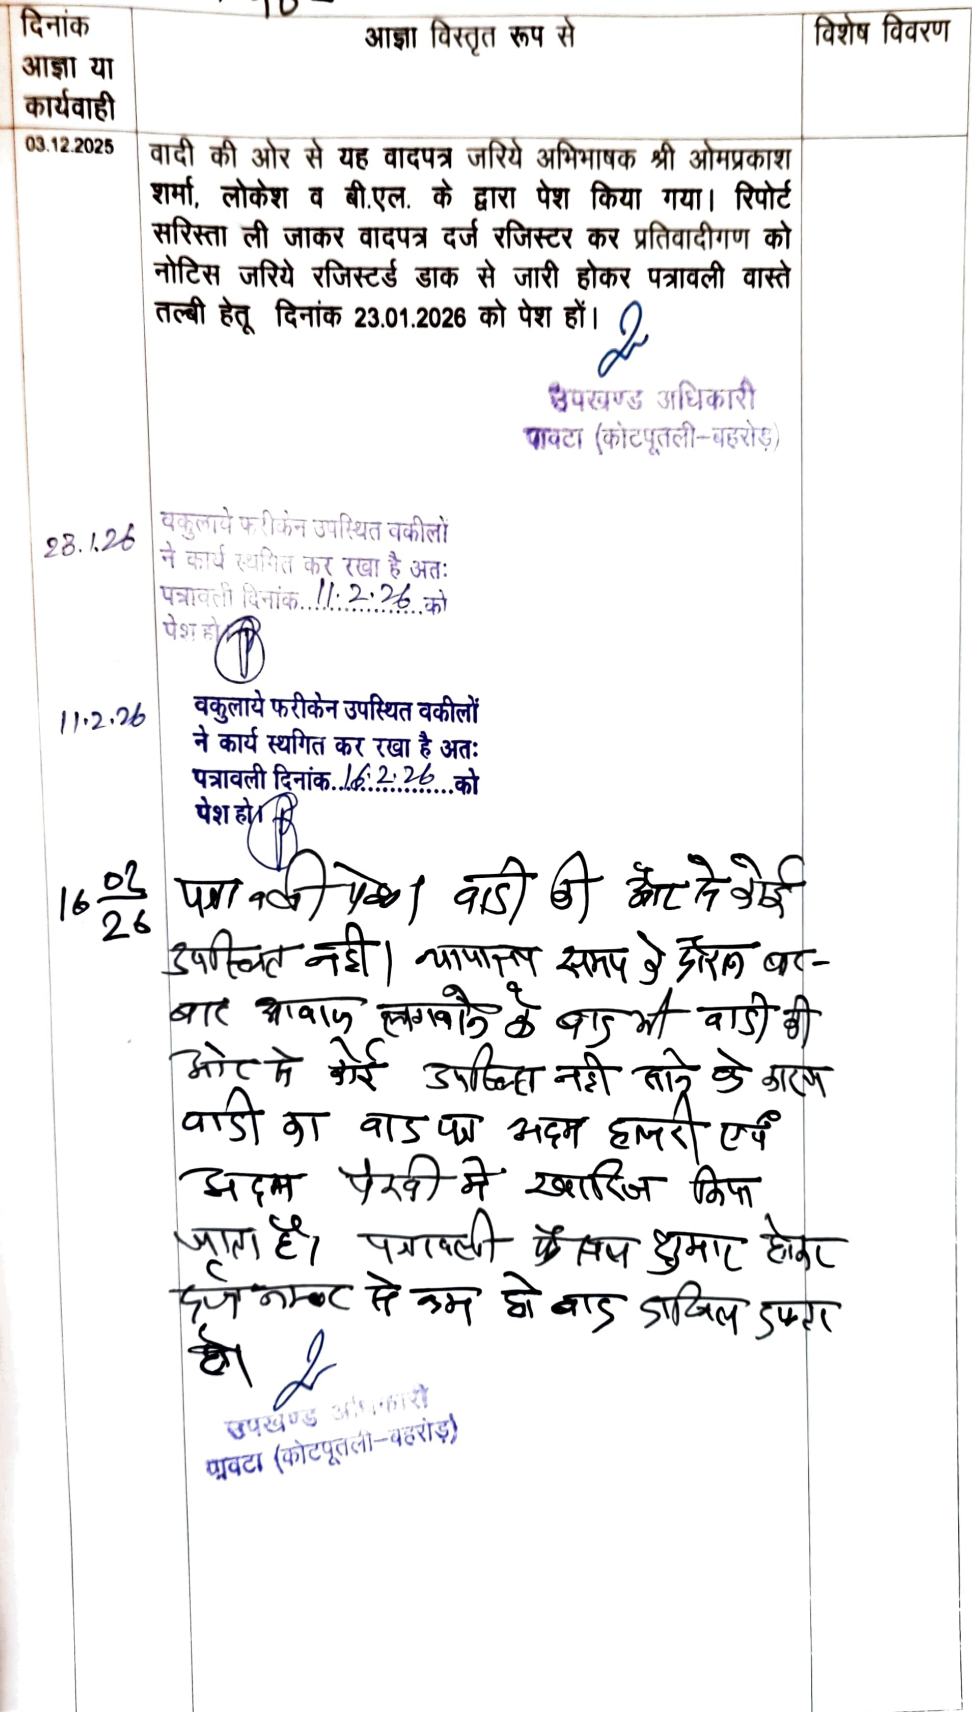 दिनांक
आज्ञा या
कार्यवाही
आज्ञा विस्तृत रूप से
विशेष विवरण
03.12.2025
वादी की ओर से यह वादपत्र जरिये अभिभाषक श्री ओमप्रकाश
शर्मा, लोकेश व बी.एल. के द्वारा पेश किया गया। रिपोर्ट
सरिस्ता ली जाकर वादपत्र दर्ज रजिस्टर कर प्रतिवादीगण को
नोटिस जरिये रजिस्टर्ड डाक से जारी होकर पत्रावली वास्ते
तल्बी हेतू दिनांक 23.01.2026 को पेश हों।
उपखण्ड अधिकारी
पावटा (कोटपूतली-बहरोड़)
23.1.26
वकुलाये फरीकेन उपस्थित वकीलों
ने कार्य स्थगित कर रखा है अतः
पत्रावली दिनांक 11.2.26 को
पेश हो।
11.2.26
वकुलाये फरीकेन उपस्थित वकीलों
ने कार्य स्थगित कर रखा है अतः
पत्रावली दिनांक 16.2.26 को
पेश हो।
16 02/26
पत्रावली पेश। वादी की ओर से कोई
उपस्थित नही। न्यायालय समय के दौरान बार-
बार आवाज लगवाने के बाद भी वादी की
ओर से कोई उपस्थित नही आने के कारण
वादी का वाद पत्र अदम हाजरी एवं
अदम पैरवी में खारिज किया
जाता है। पत्रावली फैसल शुमार होकर
दर्ज नम्बर से कम हो बाद दाखिल दफ्तर
हो।
उपखण्ड अधिकारी
पावटा (कोटपूतली-बहरोड़)